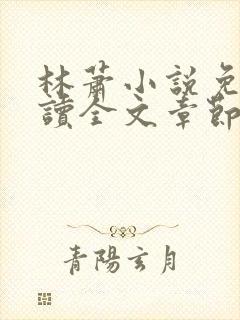 林蕭小說免
讀全文章節
青陽玄月